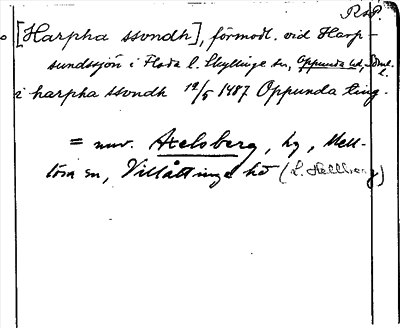 RAP.
[Harpha ssondh], förmodl. vid Harp-
sundssjön i Floda l. Skyllinge sn, Oppunda hd, Söml.
i harpha ssondh 12/5 1487 Oppunda ting.
= nuv. Axelsberg, hg, Mell-
lösa sn, Villåttinge hd (L. Hellberg)